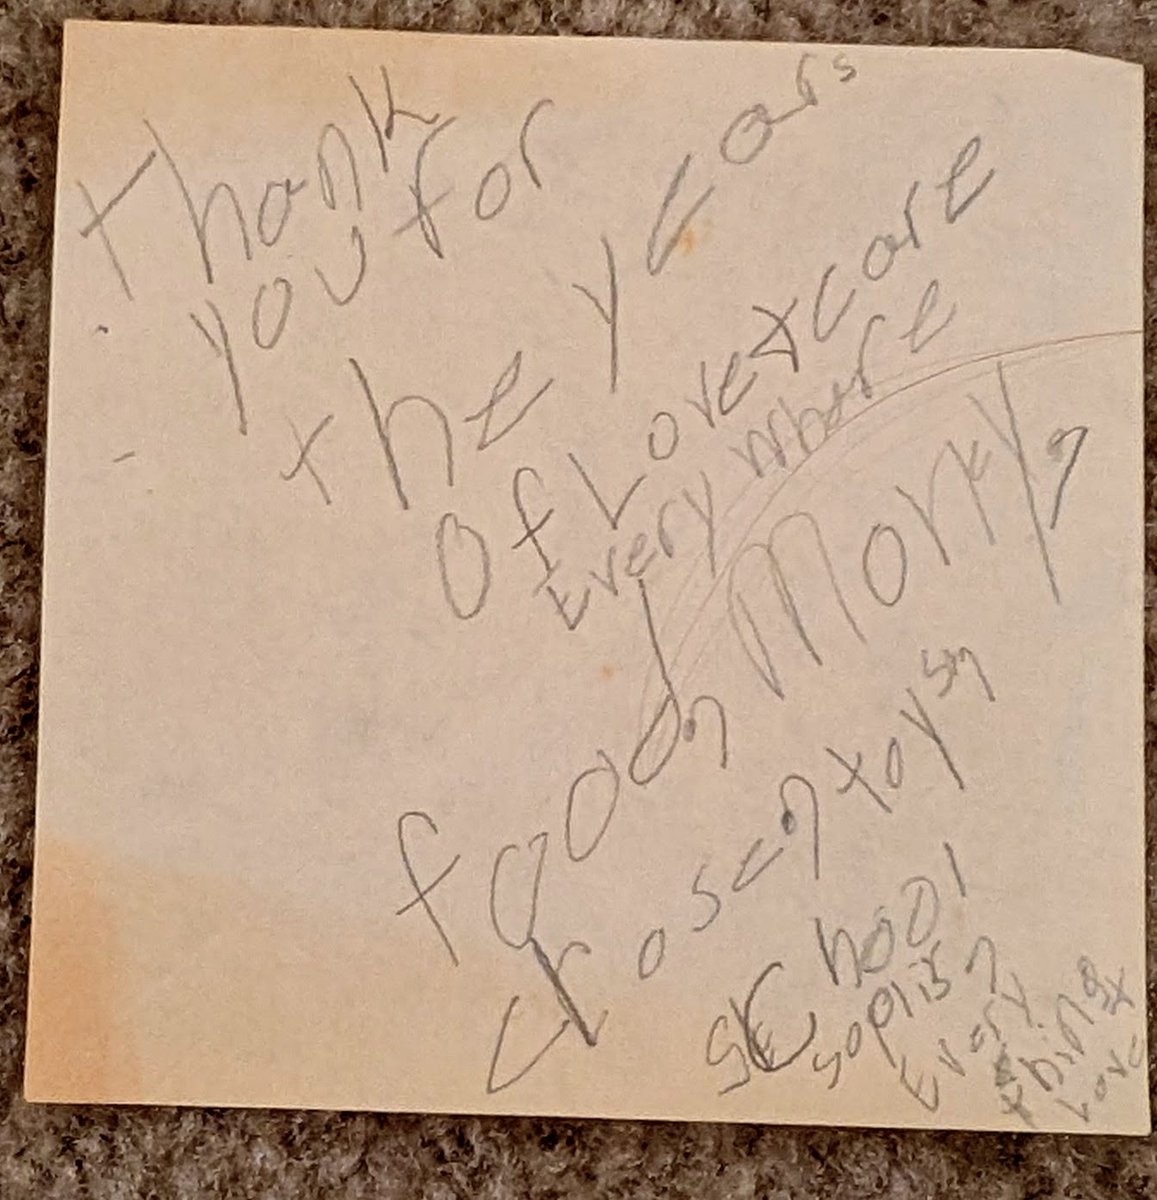 thank
you for
the years
of Love + care
Every where
food, Money,
close, toys,
school
soplis,
Every
thing +
Love